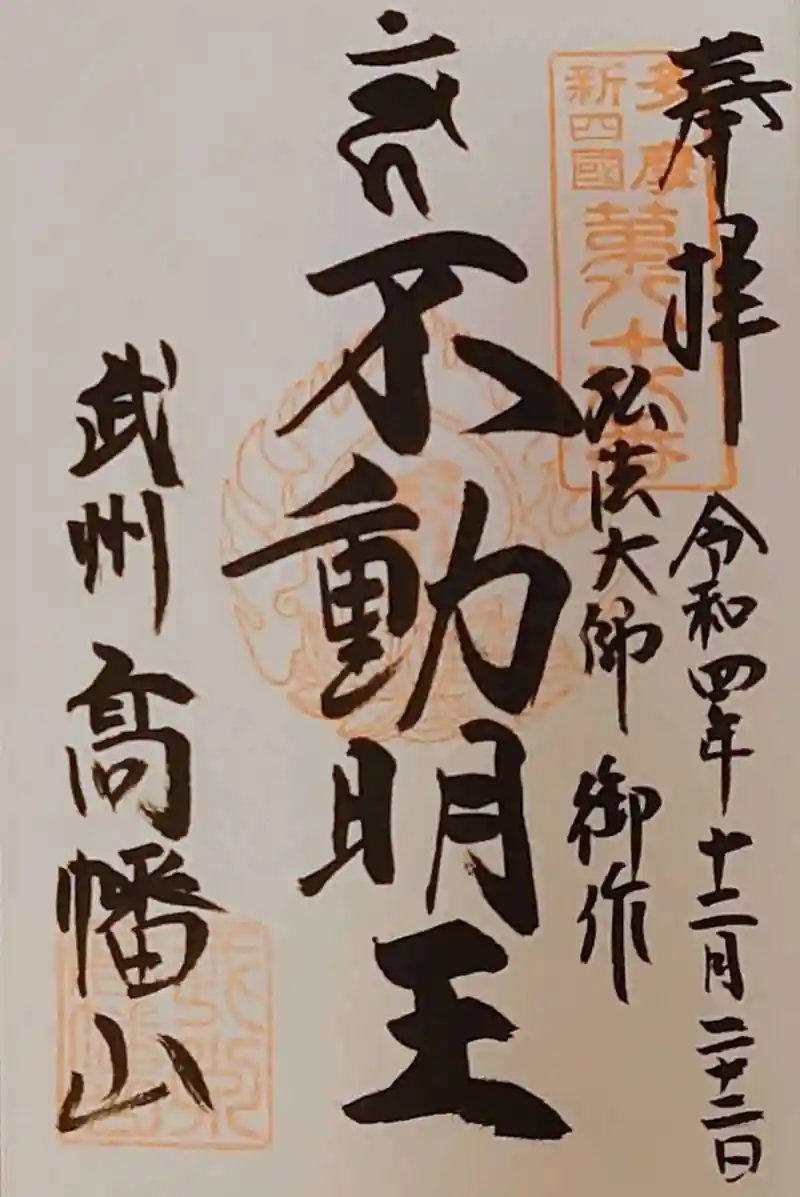 奉拝
令和四年十二月二十二日
多摩
新四國
第八十八番
弘法大師 御作
不動明王
武州 高幡山